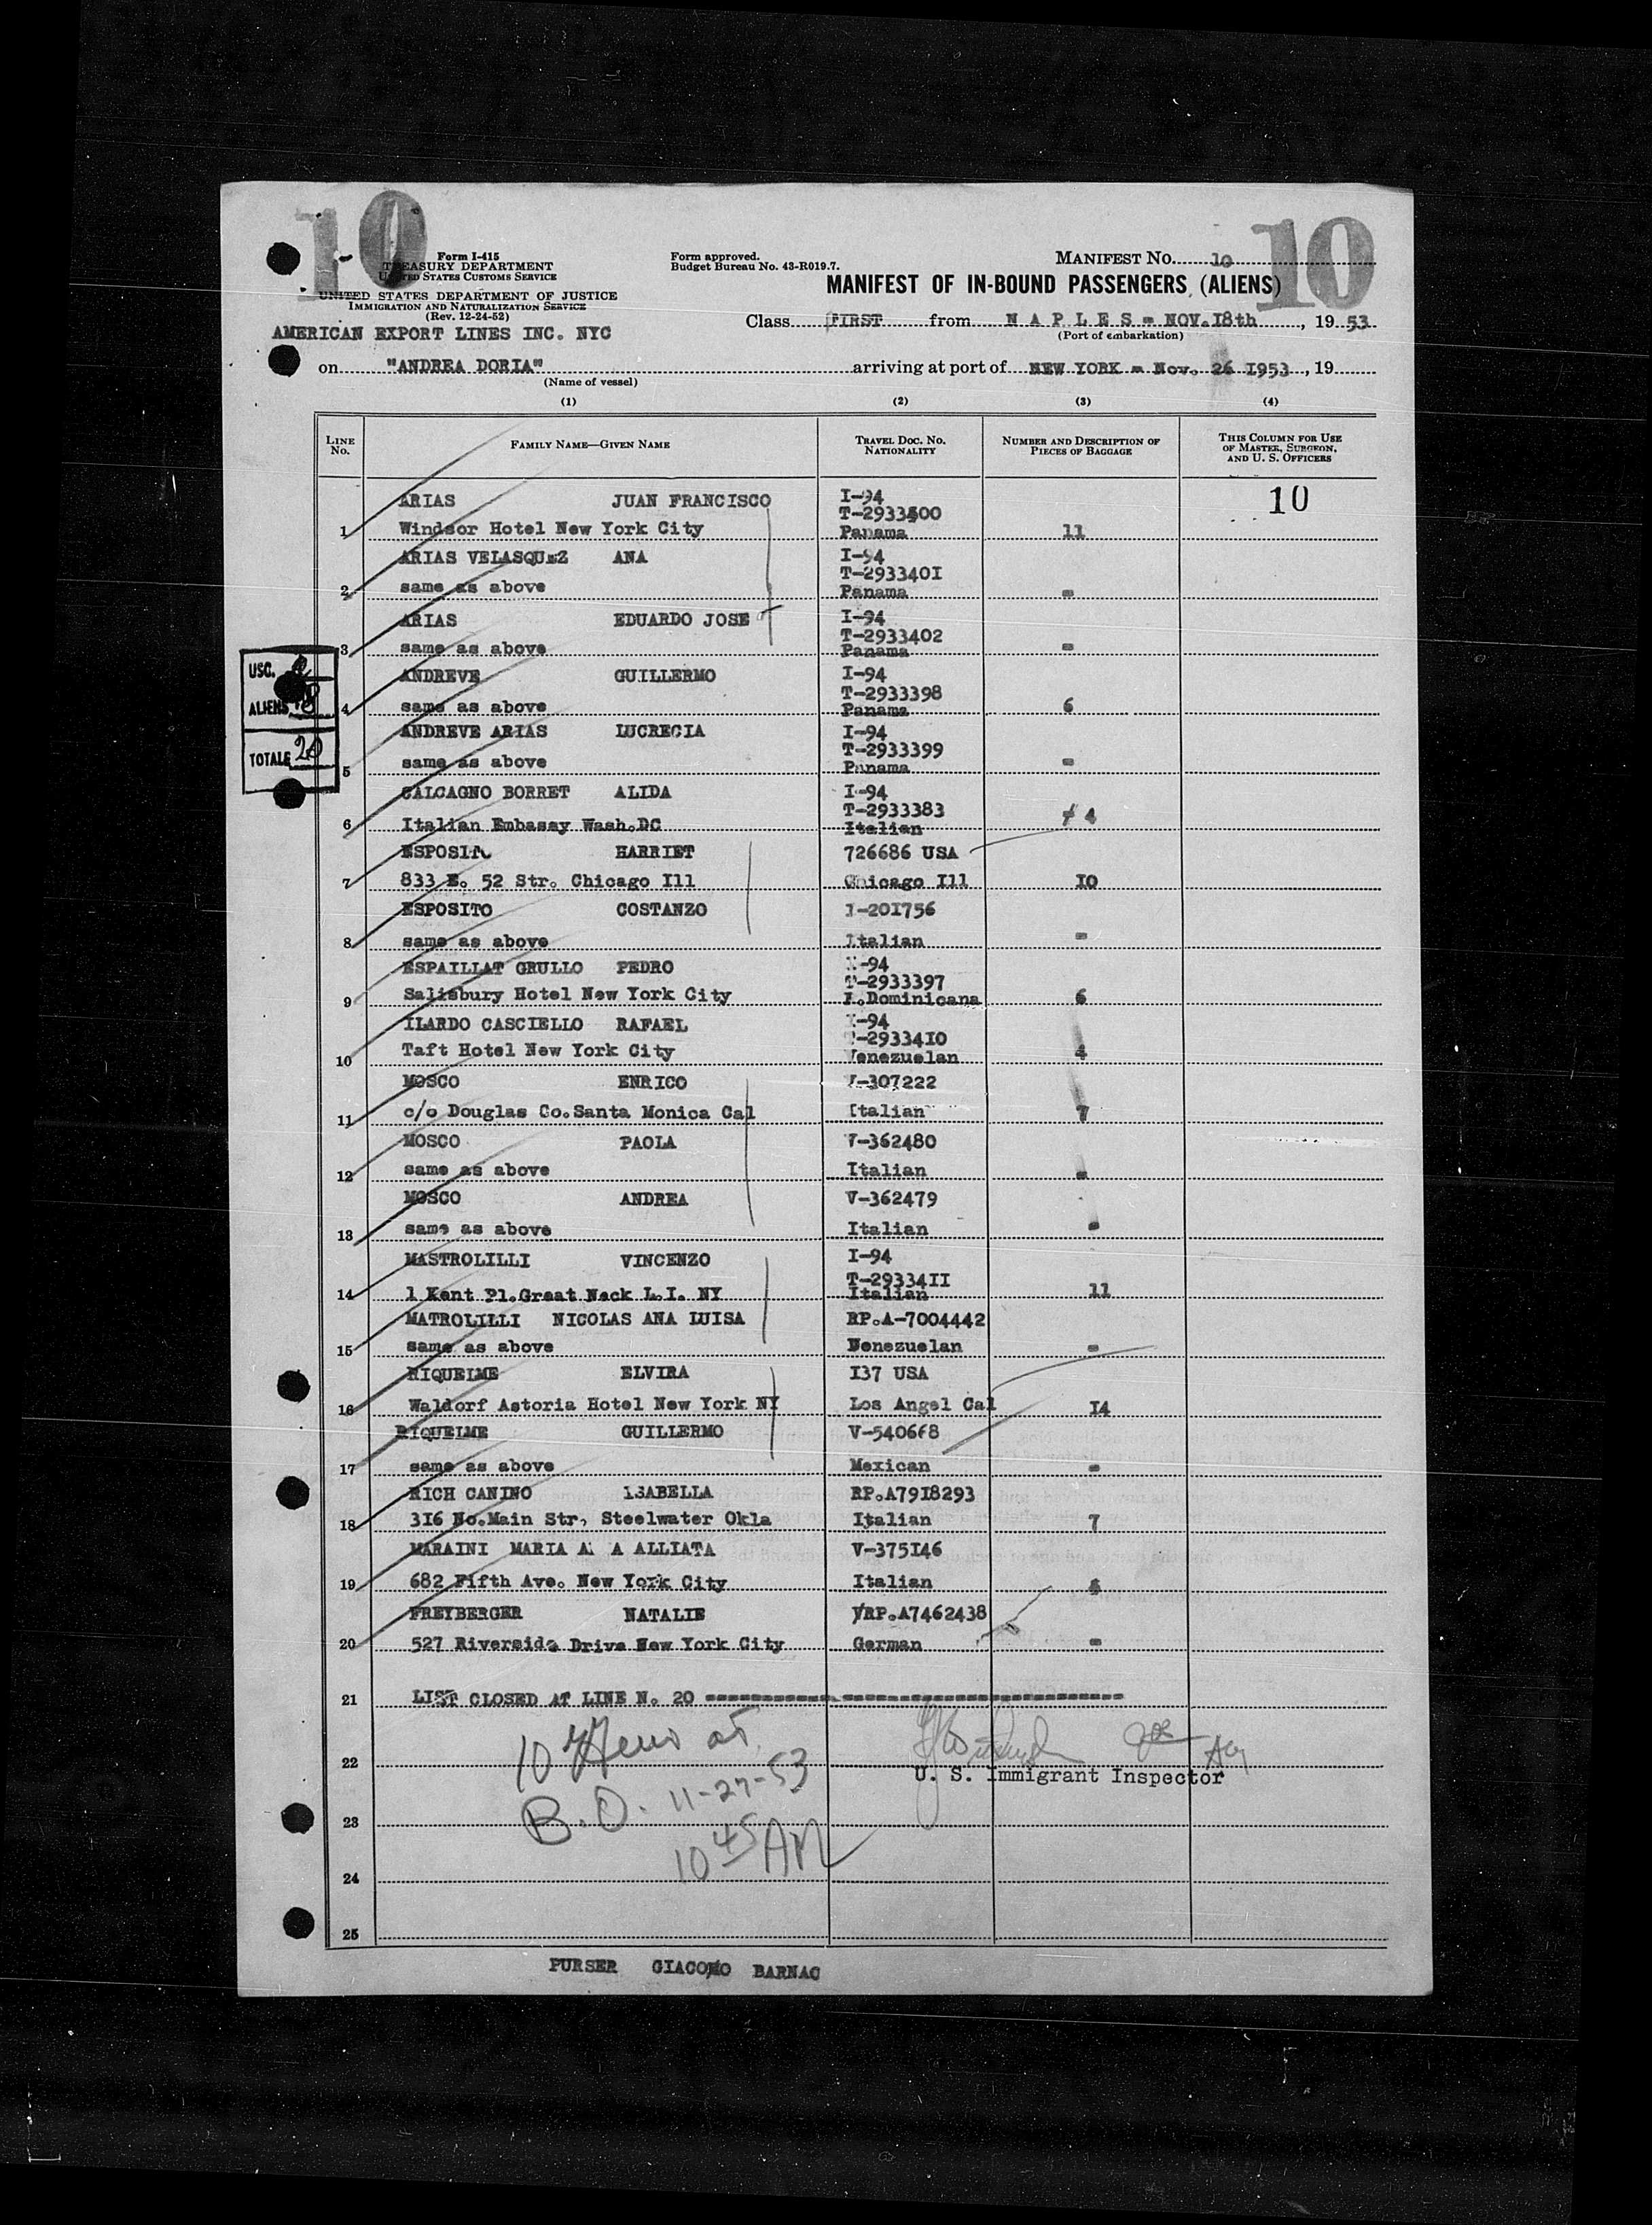 10
10
Form I-415
TREASURY DEPARTMENT
UNITED STATES CUSTOMS SERVICE
UNITED STATES DEPARTMENT OF JUSTICE
IMMIGRATION AND NATURALIZATION SERVICE
(Rev. 12-24-52)
Form approved.
Budget Bureau No. 43-R019.7.
MANIFEST No. 10
MANIFEST OF IN-BOUND PASSENGERS (ALIENS)
AMERICAN EXPORT LINES INC. NYC
Class FIRST from N A P L E S = NOV.18th, 19 53
(Port of embarkation)
on "ANDREA DORIA" arriving at port of NEW YORK = Nov. 26 1953, 19
(Name of vessel)
(1) (2) (3) (4)
LINE No. FAMILY NAME—GIVEN NAME TRAVEL DOC. No. NATIONALITY NUMBER AND DESCRIPTION OF PIECES OF BAGGAGE THIS COLUMN FOR USE OF MASTER, SURGEON, AND U. S. OFFICERS
10
ARIAS JUAN FRANCISCO I-94
T-2933400
1 Windsor Hotel New York City Panama 11
ARIAS VELASQUEZ ANA I-94
T-2933401
2 same as above Panama =
ARIAS EDUARDO JOSE I-94
T-2933402
3 same as above Panama =
ANDREVE GUILLERMO I-94
T-2933398
4 same as above Panama 6
ANDREVE ARIAS LUCRECIA I-94
T-2933399
5 same as above Panama =
CALCAGNO BORRET ALIDA I-94
T-2933383
6 Italian Embassy Wash.DC Italian 4
ESPOSITO HARRIET 726686 USA
7 833 E. 52 Str. Chicago Ill Chicago Ill 10
ESPOSITO COSTANZO I-201756
8 same as above Italian =
ESPAILLAT GRULLO PEDRO I-94
T-2933397
9 Salisbury Hotel New York City R.Dominicana 6
ILARDO CASCIELLO RAFAEL I-94
T-2933410
10 Taft Hotel New York City Venezuelan 4
MOSCO ENRICO V-307222
11 c/o Douglas Co.Santa Monica Cal Italian 7
MOSCO PAOLA V-362480
12 same as above Italian =
MOSCO ANDREA V-362479
13 same as above Italian =
MASTROLILLI VINCENZO I-94
T-2933411
14 1 Kent Pl.Great Neck L.I. NY Italian 11
MATROLILLI NICOLAS ANA LUISA RP.A-7004442
15 same as above Venezuelan =
RIQUELME ELVIRA 137 USA
16 Waldorf Astoria Hotel New York NY Los Angel Cal 14
RIQUELME GUILLERMO V-540668
17 same as above Mexican =
RICH CANINO ISABELLA RP.A7918293
18 316 No.Main Str, Steelwater Okla Italian 7
MARAINI MARIA ALLIATA V-375146
19 682 Fifth Ave. New York City Italian
FREYBERGER NATALIE RP.A7462438
20 527 Riverside Drive New York City German =
USC.
ALIENS 18
TOTALE 20
21 LIST CLOSED AT LINE N. 20
10
22 U. S. Immigrant Inspector
B.O. 11-27-53
23
10 45 AM
24
25
PURSER GIACOMO BARNAC